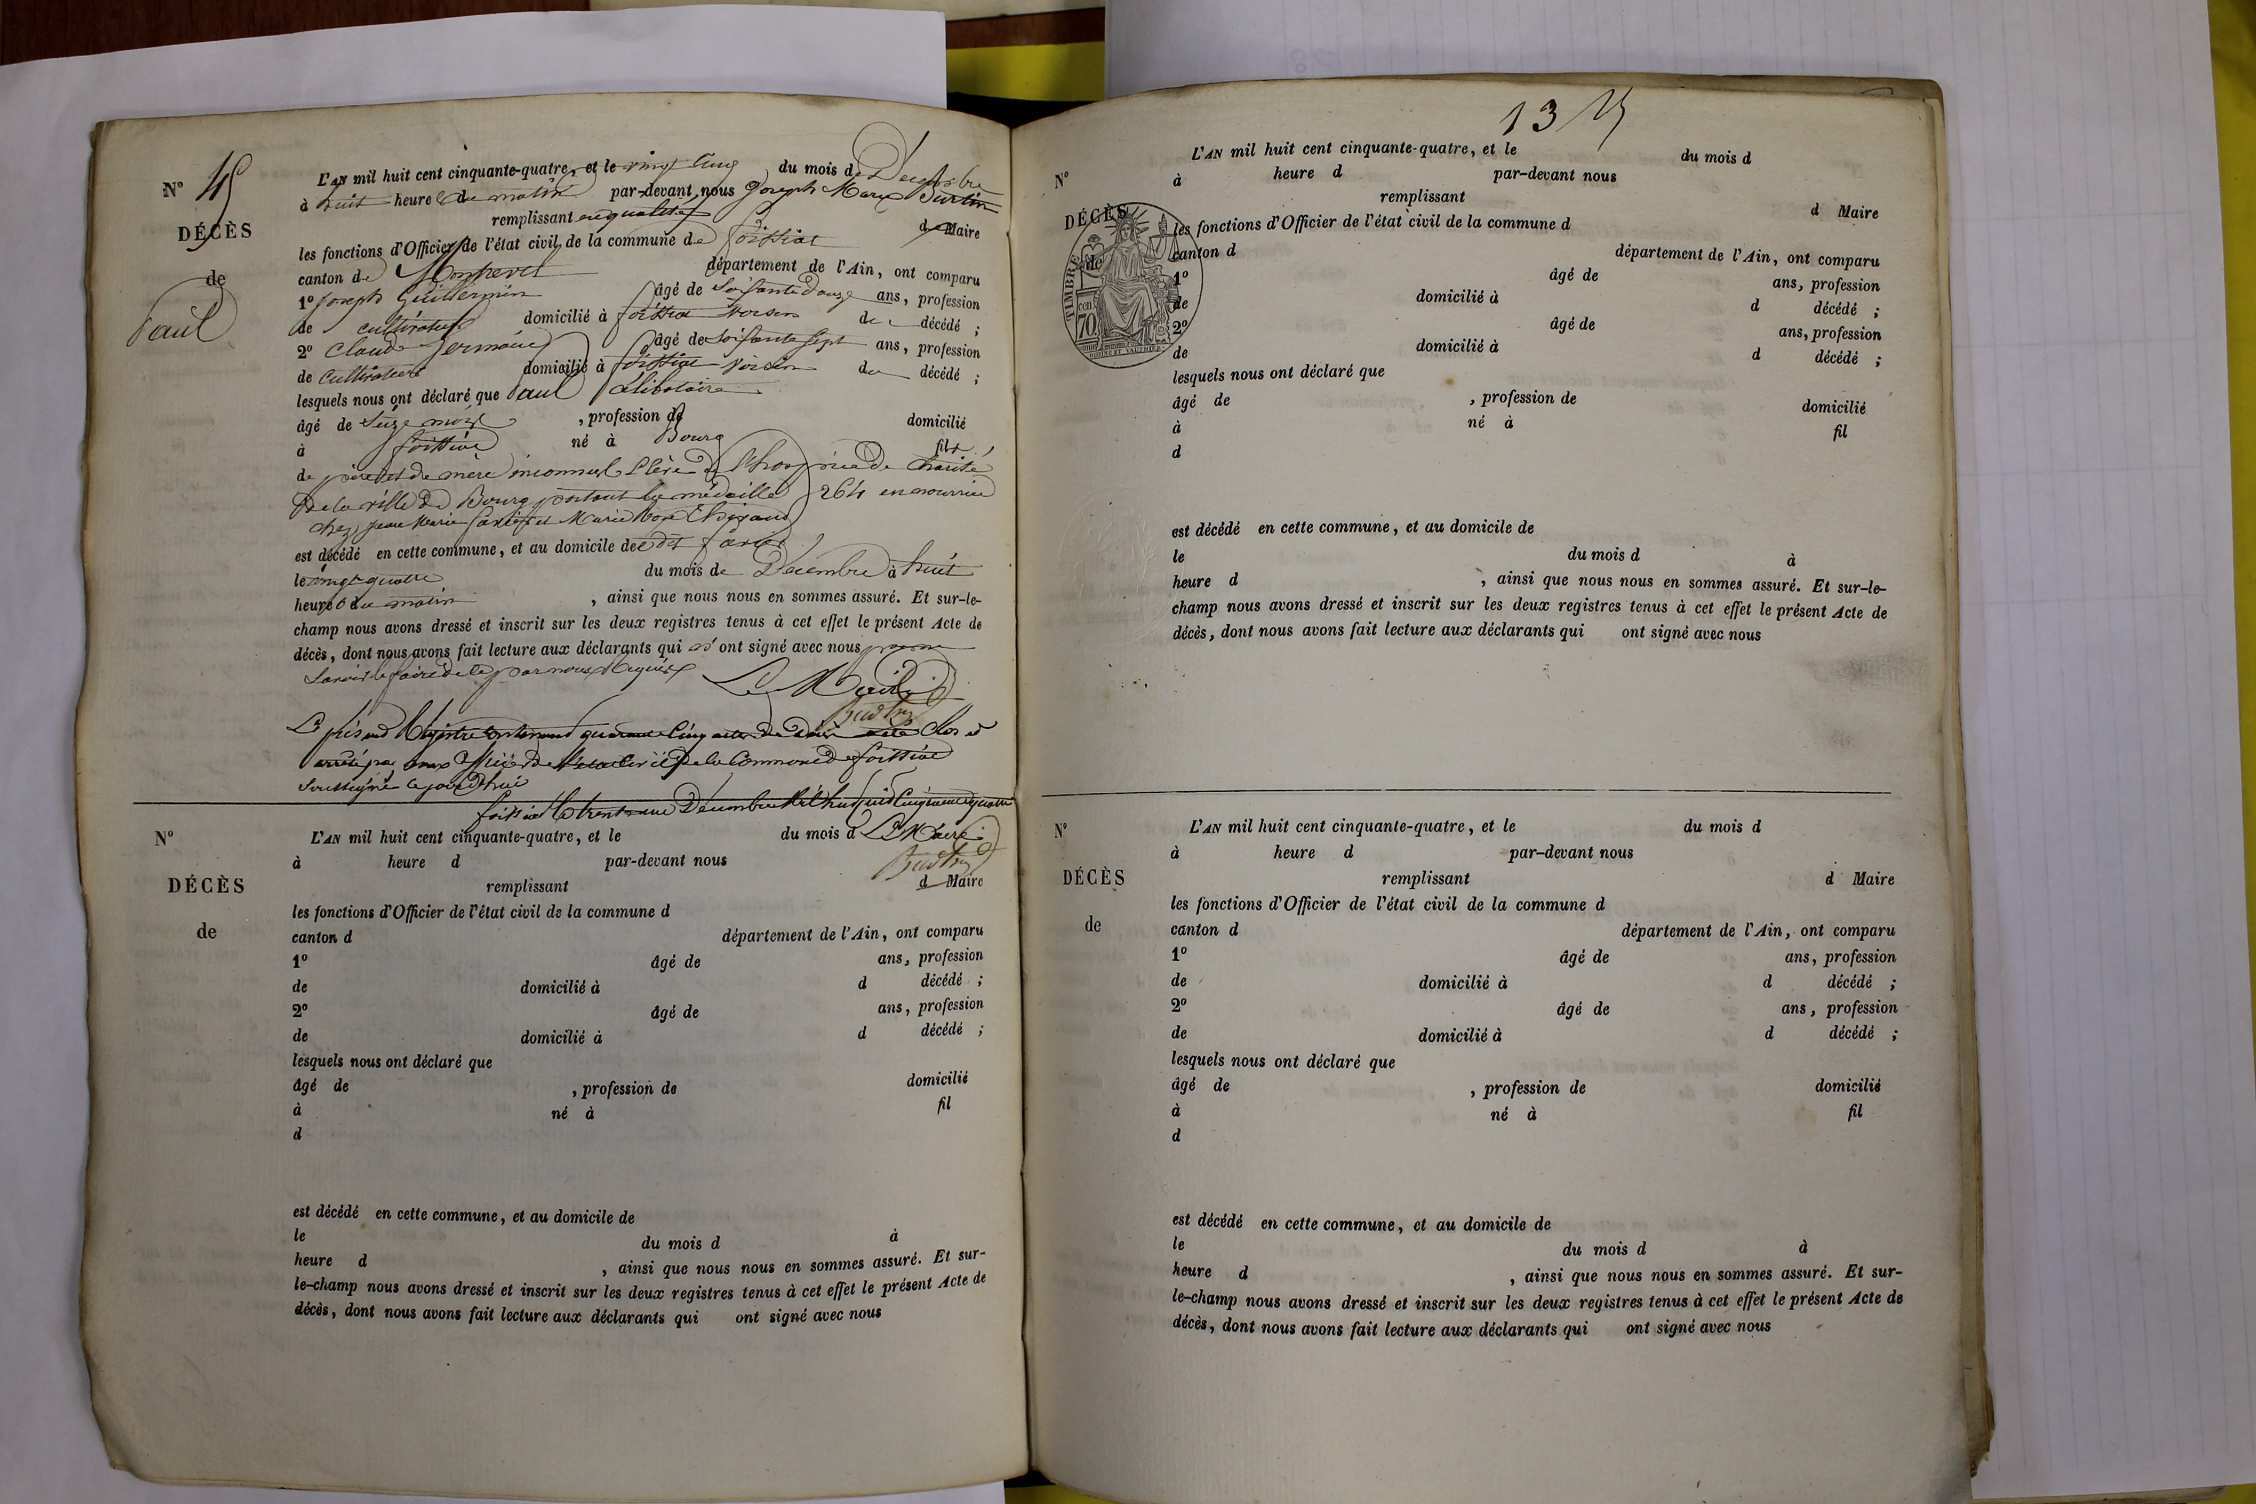 N° 45
DÉCÈS
de
Paul
L'AN mil huit cent cinquante-quatre, et le vingt cinq du mois de Décembre
à huit heure du matin par-devant nous Joseph Marie
remplissant en qualité d Maire
les fonctions d'Officier de l'état civil de la commune de foissiat
canton de Montrevel département de l'Ain, ont comparu
1° joseph Guillermin âgé de soisante douze ans, profession
de cultivateur domicilié à foissiat voisin du décédé ;
2° Claude âgé de soisante sept ans, profession
de cultivateur domicilié à foissiat voisin du décédé ;
lesquels nous ont déclaré que Paul célibataire
âgé de seize mois , profession de domicilié
à foissiat né à Bourg fils
de père et de mère inconnus élève de l'hospice de Charité
de la ville de Bourg portant la médaille 264 en nourrice
chez jean Marie et Marie
est décédé en cette commune, et au domicile de
le vingt quatre du mois de Décembre à huit
heure du matin , ainsi que nous nous en sommes assuré. Et sur-le-
champ nous avons dressé et inscrit sur les deux registres tenus à cet effet le présent Acte de
décès, dont nous avons fait lecture aux déclarants qui n'ont signé avec nous pour ne
savoir le faire de ce par nous requis
Le Maire
Le présent Registre contenant quarante cinq actes de décès a été clos et
arrêté par nous officier de l'état civil de la commune de foissiat
soussigné le jourd'hui
foissiat le trente un Décembre mil huit cent cinquante quatre
Le Maire
N°
DÉCÈS
de
L'AN mil huit cent cinquante-quatre, et le du mois d
à heure d par-devant nous
remplissant d Maire
les fonctions d'Officier de l'état civil de la commune d
canton d département de l'Ain, ont comparu
1° âgé de ans, profession
de domicilié à d décédé ;
2° âgé de ans, profession
de domicilié à d décédé ;
lesquels nous ont déclaré que
âgé de , profession de domicilié
à né à fil
d
est décédé en cette commune, et au domicile de
le du mois d à
heure d , ainsi que nous nous en sommes assuré. Et sur-
le-champ nous avons dressé et inscrit sur les deux registres tenus à cet effet le présent Acte de
décès, dont nous avons fait lecture aux déclarants qui ont signé avec nous
13
N°
DÉCÈS
de
TIMBRE
70 cen
L'AN mil huit cent cinquante-quatre, et le du mois d
à heure d par-devant nous
remplissant d Maire
les fonctions d'Officier de l'état civil de la commune d
canton d département de l'Ain, ont comparu
1° âgé de ans, profession
de domicilié à d décédé ;
2° âgé de ans, profession
de domicilié à d décédé ;
lesquels nous ont déclaré que
âgé de , profession de domicilié
à né à fil
d
est décédé en cette commune, et au domicile de
le du mois d à
heure d , ainsi que nous nous en sommes assuré. Et sur-le-
champ nous avons dressé et inscrit sur les deux registres tenus à cet effet le présent Acte de
décès, dont nous avons fait lecture aux déclarants qui ont signé avec nous
N°
DÉCÈS
de
L'AN mil huit cent cinquante-quatre, et le du mois d
à heure d par-devant nous
remplissant d Maire
les fonctions d'Officier de l'état civil de la commune d
canton d département de l'Ain, ont comparu
1° âgé de ans, profession
de domicilié à d décédé ;
2° âgé de ans, profession
de domicilié à d décédé ;
lesquels nous ont déclaré que
âgé de , profession de domicilié
à né à fil
d
est décédé en cette commune, et au domicile de
le du mois d à
heure d , ainsi que nous nous en sommes assuré. Et sur-
le-champ nous avons dressé et inscrit sur les deux registres tenus à cet effet le présent Acte de
décès, dont nous avons fait lecture aux déclarants qui ont signé avec nous